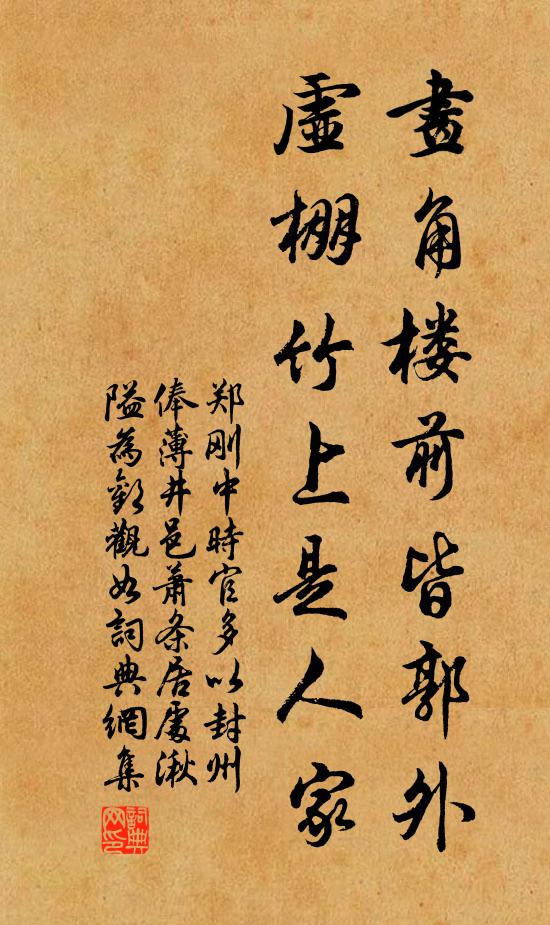 畫角楼前皆郭外
虛棚竹上是人家
郑刚中時官多以封州
俸薄井邑蕭条居處湫
隘為歎觀如詞典網集
詞典
网印